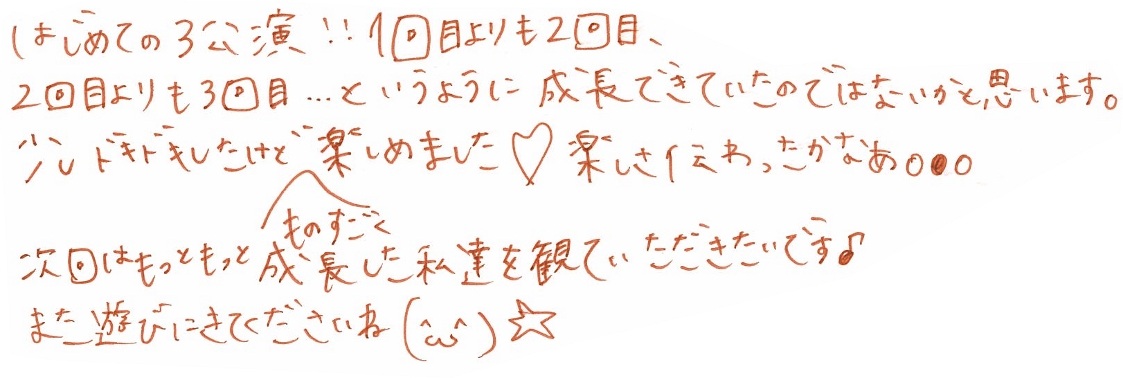 はじめての3公演!!1回目よりも2回目、
2回目よりも3回目...というように成長できていたのではないかと思います。
少しドキドキしたけど楽しめました♡楽しさ伝わったかなあ○●○
ものすごく
次回はもっともっと成長した私達を観ていただきたいです♪
また遊びにきてくださいね(^ω^)☆